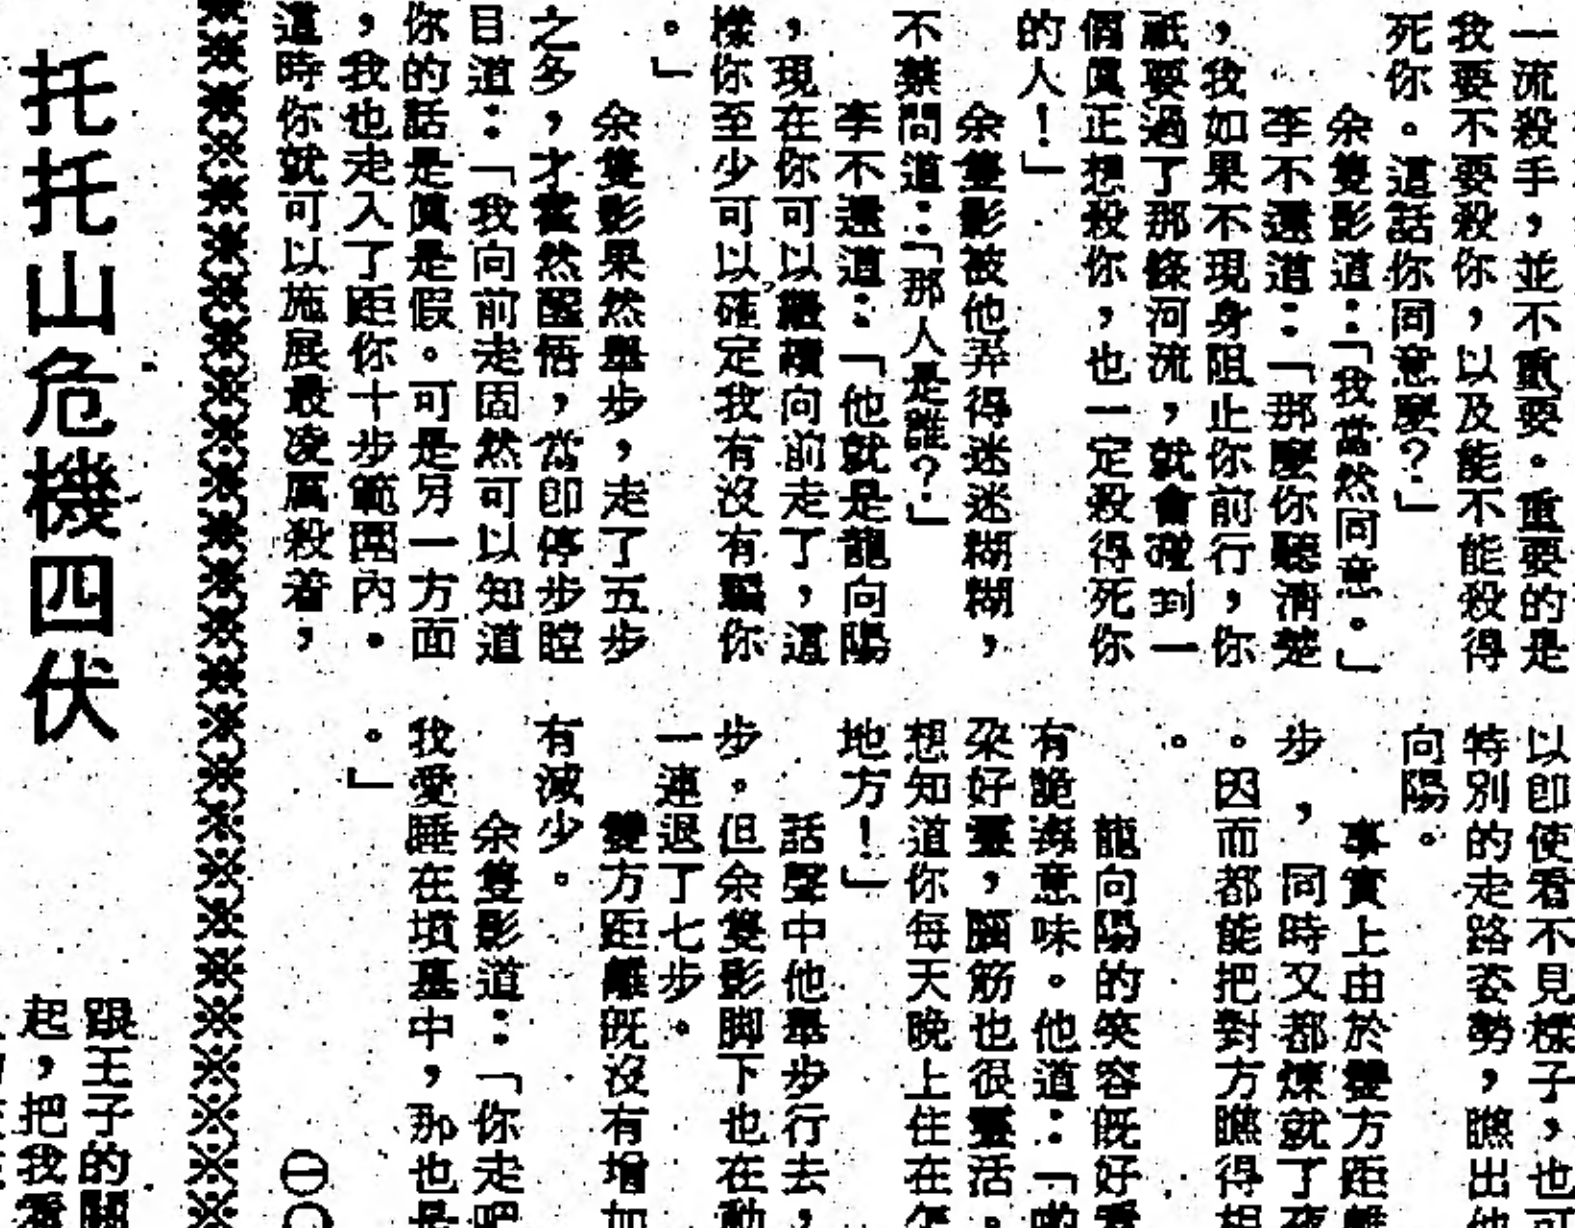 一流殺手，並不重要。重要的是
我要不要殺你，以及能不能殺得
死你。這話你同意麼？」
余隻影道：「我當然同意。」
李不還道：「那麼你聽清楚
，我如果不現身阻止你前行，你
祇要過了那條河流，就會碰到一
個真正想殺你，也一定殺得死你
的人！」
余隻影被他弄得迷迷糊糊，
不禁問道：「那人是誰？」
李不還道：「他就是龍向陽
，現在你可以繼續向前走了，這
樣你至少可以確定我有沒有騙你
。」
余隻影果然舉步，走了五步
之多，才霍然醒悟，當卽停步瞠
目道：「我向前走固然可以知道
你的話是真是假。可是另一方面
，我也走入了距你十步範圍內。
這時你就可以施展最凌厲殺着，
以卽使看不見樣子，也可
特別的走路姿勢，瞧出他
向陽。
事實上由於雙方距離
步，同時又都煉就了夜
。因而都能把對方瞧得相
。
龍向陽的笑容旣好看
有詭海意味。他道：「喲
朶好靈，腦筋也很靈活。
想知道你每天晚上住在怎
地方！」
話聲中他舉步行去，
步。但余隻影脚下也在動
一連退了七步。
雙方距離旣沒有增加
有減少。
余隻影道：「你走吧
我愛睡在墳墓中，那也是
。」
㊀〇
托托山危機四伏
跟王子的關
起，把我看